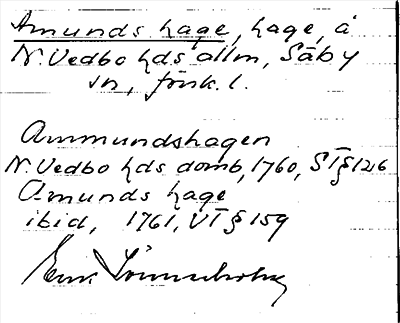 Amunds hage, hage, å
N. Vedbo hds allm, Säby
sn, förk. l.
Ammundshagen
N. Vedbo hds domb, 1760, ST § 126
Amunds hage
ibid, 1761, VT § 159